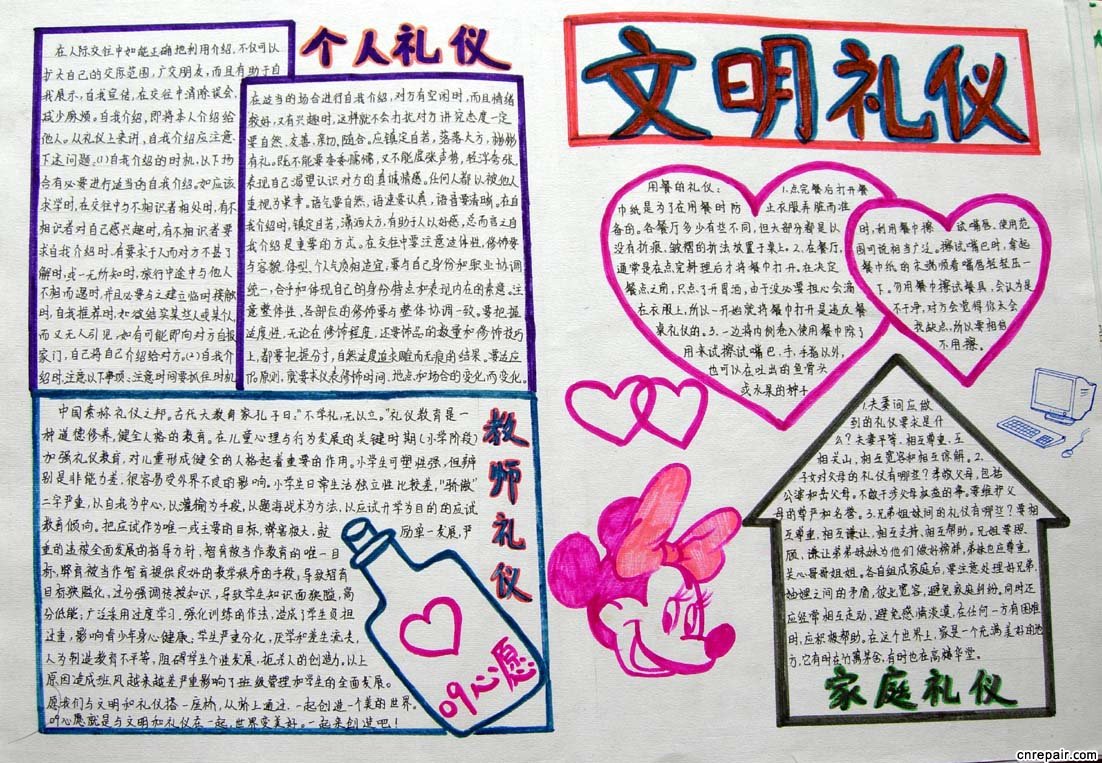 文明礼仪
个人礼仪
在人际交往中如能正确地利用介绍,不仅可以
扩大自己的交际范围,广交朋友,而且有助于自
我展示、自我宣传,在交往中消除误会,
减少麻烦。自我介绍,即将本人介绍给
他人。从礼仪上来讲,自我介绍应注意
下述问题:(1)自我介绍的时机,以下场
合有必要进行适当的自我介绍。如应该
求学时,在交往中与不相识者相处时,有不
相识者对自己感兴趣时,有不相识者要
求自我介绍时,有要求于人而对方不甚了
解时,或一无所知时,旅行途中与他人
不期而遇时,并且必要与之建立临时接触
时,自我推荐时,如欲结实某些人或某个人
而又无人引见,如有可能即向对方自报
家门,自己将自己介绍给对方。(2)自我介
绍时,注意以下事项、注意时间要抓住时机
在适当的场合进行自我介绍,对方有空闲时,而且情绪
较好,又有兴趣时,这样就不会打扰对方讲究态度一定
要自然、友善、亲切、随合。应镇定自若,落落大方,彬彬
有礼。既不能委委懦懦,又不能虚张声势,轻浮夸张。
表现自己渴望认识对方的真诚情感。任何人都以被他人
重视为荣幸。语气要自然,语速要认真,语音要清晰。在自
我介绍时,镇定自若,潇洒大方,有助于人以好感,总而言之自
我介绍是重要的方式。在交往中要注意这体性,修饰要
与容貌、体型、个人气质相适宜,要与自己身份和职业协调
统一,合乎和体现自己的身份特点和表现内在的素意。注
意整体性,各部位的修饰要与整体协调一致。要把握
适度性,无论在修饰程度,还是饰品的数量和修饰技巧
上,都要把握分寸,自然适度追求雕而无痕的结果。要适应
原则,就要求仪表修饰时间、地点和场合的变化而变化。
教师礼仪
中国素称礼仪之邦。古代大教育家孔子曰:"不学礼,无以立。"礼仪教育是一
种道德修养、健全人格的教育。在儿童心理与行为发展的关键时期(小学阶段)
加强礼仪教育,对儿童形成健全的人格起着重要的作用。小学生可塑性强,但辨
别是非能力差,很容易受外界不良的影响。小学生日常生活独立性比较差,"骄傲"
二字严重,以自我为中心,以灌输为手段,以题海战术为方法,以应试升学为目的的应试
教育倾向。把应试作为唯一或主要的目标,弊害极大,鼓励单一发展,严
重的违被全面发展的指导方针,智育被当作教育的唯一目
标,德育被当作智育提供良好的教学秩序的手段,导致智育
目标狭隘化,过分强调传授知识,导致学生知识面狭隘,高
分低能;广泛采用过度学习、强化训练的作法,造成了学生负担
过重,影响青少年身心健康、学生严重分化,厌学和差生流失,
人为制造教育不平等,阻碍学生个性发展,扼杀人的创造力。以上
原因造成班风越来越差严重影响了班级管理和学生的全面发展。
愿我们与文明和礼仪搭一座桥,从桥上通过,一起创造一个美的世界。
心愿就是与文明和礼仪在一起,世界变美好。一起来创造吧!
09心愿
用餐的礼仪: 1.点完餐后打开餐
巾纸是为了在用餐时防止衣服弄脏而准
备的。各餐厅多少有些不同,但大部分都是以
没有折痕、皱褶的折法放置于桌上。2.在餐厅,
通常是在点完料理后才将餐巾打开。在决定
餐点之前,只点了开胃酒,由于没必要担心会滴
在衣服上,所以一开始就将餐巾打开是违反餐
桌礼仪的。3.一边将内侧卷入使用餐巾除了
用来试擦试嘴巴,手,手指以外,
也可以在吐出的鱼骨头
或水果的种子
时,利用餐巾擦试嘴唇,使用范
围可说相当广泛。擦试嘴巴时,拿起
餐巾纸的末端顺着嘴唇轻轻压一
下。勿用餐巾擦试餐具,会认为是
不干净,对方会觉得你太会
找缺点,所以要相信
不用擦。
1.夫妻间应做
到的礼仪要求是什
么?夫妻平等,相互尊重,互
相关心,相互宽容和相互谅解。2.
子女对父母的礼仪有哪些?孝敬父母,包括
公婆和岳父母。不敢干涉父母应该的事。要维护父
母的尊严和名誉。3.兄弟姐妹间的礼仪有哪些?要相
互尊重,相互谦让,相互支持,相互帮助。兄姐要照
顾、谦让弟弟妹妹为他们做好榜样,弟妹也应尊重,
关心哥哥姐姐。各自组成家庭后,要注意处理好兄弟,
妯娌之间的矛盾,彼此宽容,避免家庭纠纷。同时还
应经常相互走动,避免感情淡漠。在任何一方有困难
时,应积极帮助。在这个世界上,家是一个充满美好的地
方,它有时在竹篱茅舍,有时也在高楼华堂。
家庭礼仪
cnrepair.com